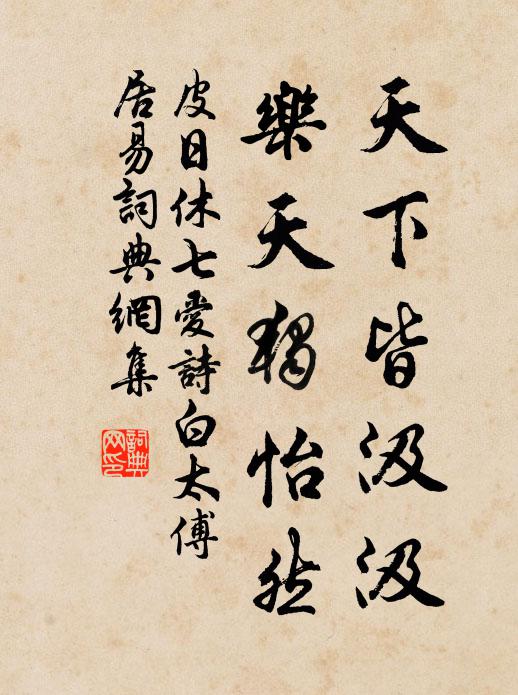 天下皆汲汲
樂天獨怡然
皮日休七愛詩白太傅
居易詞典網集
詞典
网印